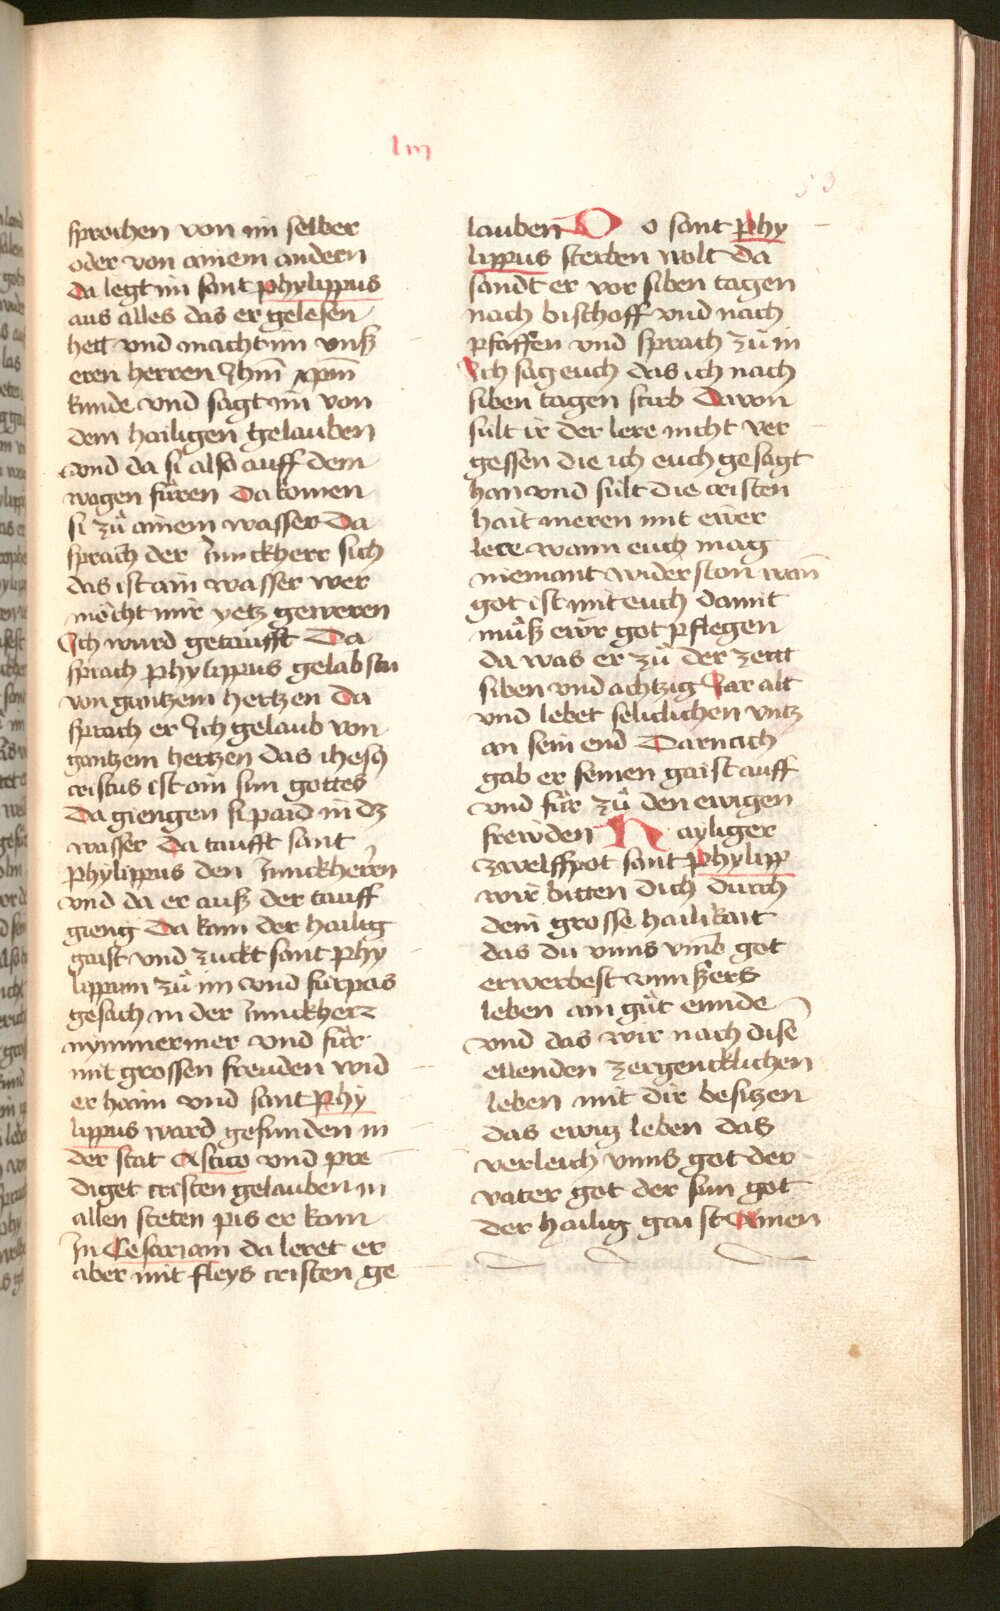 liii
53
sprochen von im selber
oder von ainem andern
da legt im sant phylippus
aus alles das er gelesen
hett vnd macht im vnß
eren herren Jhm̄ xpm̄
kunde vnd sagt im von
dem hailigen gelauben
vnd da si also auff dem
wagen fůren da komen
si zů ainem wasser Da
sprach der Junckherr sich
das ist ain wasser wer
möcht mir yetz geweren
Ich wurd getaufft Da
sprach phylippus gelabstu
von gantzem hertzen Da
sprach er Ich gelaub von
gantzem hertzen das ihesus
cristus ist ain sun gottes
Da giengen si paid in dz
wasser da taufft sant
phylippus den Junckherrn
vnd da er auß der tauff
gieng Da kam der hailig
gaist vnd zuckt sant phy
lippum zů im vnd fürpas
gesach in der Junckherr
nymmermer vnd fůr
mit grossen freuden wid
er haim vnd sant phy
lippus ward gefunden in
der stat Astito vnd pre
diget cristen gelauben in
allen steten pis er kam
In Cesariam da leret er
aber mit fleys cristen ge
lauben Do sant phy
lippus sterben wolt da
sandt er vor siben tagen
nach bischoff vnd nach
pfaffen vnd sprach zů in
Ich sag euch das ich nach
siben tagen stirb Darvon
sült ir der lere nicht ver
gessen die ich euch gesagt
han vnd sült die cristen
hait meren mit ewer
lere wann euch mag
niemant wider ston wan̄
got ist mit euch damit
můß ewr got pflegen
da was er zů der zeitt
siben vnd achtzig Jar alt
vnd lebet seliclichen vntz
an sein end Darnach
gab er seinen gaist auff
vnd fůr zů den ewigen
frewden Hayliger
zwelffpot sant phylipp
wir bitten dich durch
dein grosse hailikait
das du vnns vmb got
erwerbest vnnsers
leben ain gůt ennde
vnd das wir nach dise
ellenden zergencklichen
leben mit dir besitzen
das ewig leben das
verleich vnns got der
vater got der sun got
der hailig gaist Amen